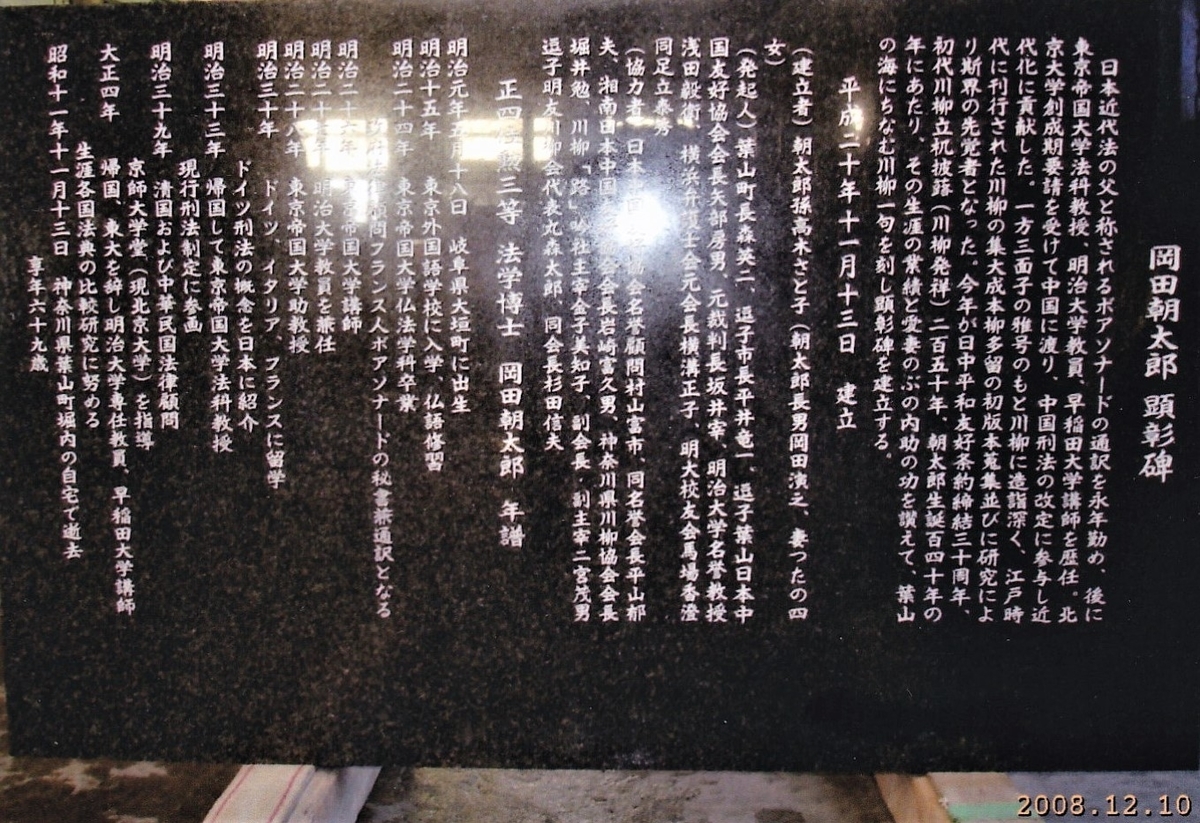 岡田朝太郎 顕彰碑
日本近代法の父と称されるボアソナードの通訳を永年勤め、後に
東京帝国大学法科教授、明治大学教員、早稲田大学講師を歴任。北
京大学創成期要請を受けて中国に渡り、中国刑法の改定に参与し近
代化に貢献した。一方三面子の雅号のもと川柳に造詣深く、江戸時
代に刊行された川柳の集大成本柳多留の初版本蒐集並びに研究によ
り斯界の先覚者となった。今年が日中平和友好条約締結三十周年、
初代川柳立机披露(川柳発祥)二百五十年、朝太郎生誕百四十年の
年にあたり、その生涯の業績と愛妻のぶの内助の功を讃えて、葉山
の海にちなむ川柳一句を刻し顕彰碑を建立する。
平成二十年十一月十三日 建立
(建立者)朝太郎孫高木さと子(朝太郎長男岡田濱之、妻つたの四
女)
(発起人)葉山町長森英二、逗子市長平井竜一、逗子葉山日本中
国友好協会会長矢部房男、元裁判長坂井宰、明治大学名誉教授
浅田毅衛、横浜弁護士会元会長横溝正子、明大校友会馬場香澄
同足立泰秀
(協力者)日本中国友好協会名誉顧問村山富市、同名誉会長平山郁
夫、湘南日本中国 会会長岩崎富久男、神奈川県川柳協会会長
堀井勉、川柳「路」吟社主宰金子美知子、副会長・副主宰二宮茂男
逗子明友川柳会代表丸森太郎、同会長杉田信夫
正四位勲三等 法学博士 岡田朝太郎 年譜
明治元年五月十八日 岐阜県大垣町に出生
明治十五年 東京外国語学校に入学、仏語修習
明治二十四年 東京帝国大学仏法学科卒業
顧問フランス人ボアソナードの秘書兼通訳となる
明治二十六年 東京帝国大学講師
明治二十 年 明治大学教員を兼任
明治二十八年 東京帝国大学助教授
明治三十年 ドイツ、イタリア、フランスに留学
ドイツ刑法の概念を日本に紹介
明治三十三年 帰国して東京帝国大学法科教授
現行刑法制定に参画
明治三十九年 清国および中華民国法律顧問
京師大学堂(現北京大学)を指導
大正四年 帰国、東大を辞し明治大学専任教員、早稲田大学講師
生涯各国法典の比較研究に努める
昭和十一年十一月十三日 神奈川県葉山町堀内の自宅で逝去
享年六十九歳
2008.12.10